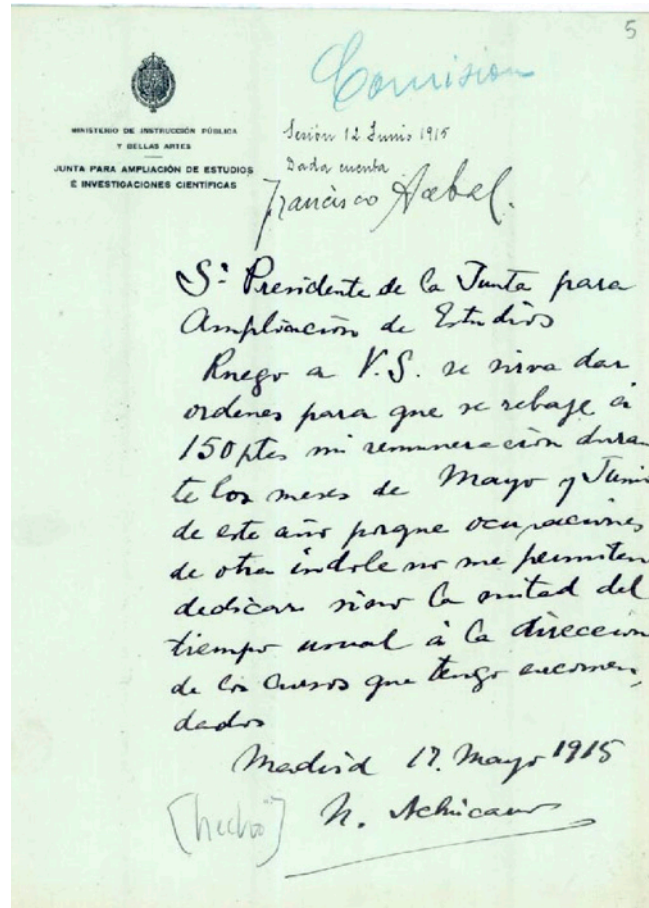 5
Comision
MINISTERIO DE INSTRUCCIÓN PÚBLICA
Y BELLAS ARTES
JUNTA PARA AMPLIACIÓN DE ESTUDIOS
É INVESTIGACIONES CIENTÍFICAS
Sesión 12 Junio 1915
Dada cuenta
Francisco Acebal.
Sr. Presidente de la Junta para
Ampliación de Estudios
Ruego a V.S. se sirva dar
ordenes para que se rebaje á
150 ptes mi remuneración duran
te los meses de Mayo y Junio
de este año porque ocupaciones
de otra índole no me permiten
dedicar sino la mitad del
tiempo usual á la direccion
de los cursos que tengo encomen
dados
Madrid 17. Mayo 1915
N. Achúcarro
[hecho]